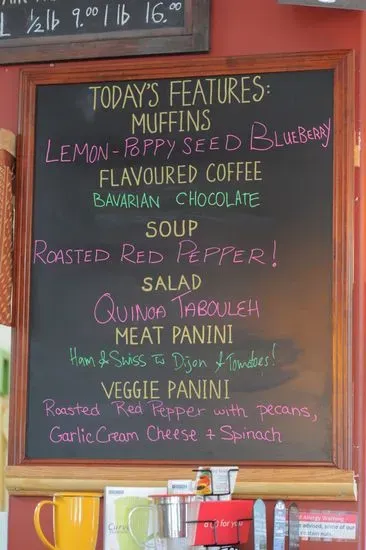 L 1/2 lb 9.00 1 lb 16.00
TODAY'S FEATURES:
MUFFINS
LEMON-POPPYSEED BLUEBERRY
FLAVOURED COFFEE
BAVARIAN CHOCOLATE
SOUP
ROASTED RED PEPPER!
SALAD
QUINOA TABOULEH
MEAT PANINI
Ham & Swiss w Dijon & Tomatoes!
VEGGIE PANINI
Roasted Red Pepper with pecans,
Garlic Cream Cheese + Spinach
Allergy Warning
advised, some of our
for you